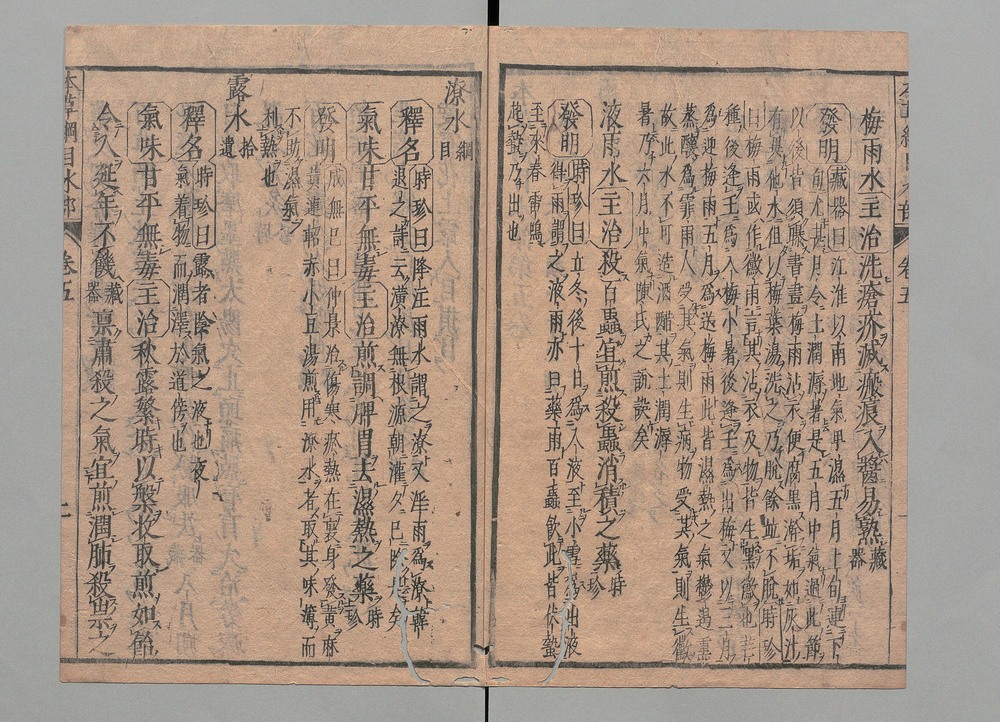 本草綱目水部 卷五
梅雨水主治洗瘡疥滅瘢痕入醬易熟藏器
發明藏器曰江淮以南地氣卑濕五月上旬連下
旬尤甚月令土潤溽暑是五月中氣過此節
以後皆須曝書畫梅雨沾衣便腐黑澣垢如灰汁
有異他水但以梅葉湯洗之乃脫餘並不脫時珍
曰梅雨或作黴雨言其沾衣及物皆生黑黴也芒
種後逢壬爲入梅小暑後逢壬爲出梅又以三月
爲迎梅雨五月爲送梅雨此皆濕熱之氣鬱遏熏
蒸釀爲霏雨人受其氣則生病物受其氣則生黴
故此水不可造酒醋其土潤溽
暑乃六月中氣陳氏之說誤矣
液雨水主治殺百蟲宜煎殺蟲消積之藥時珍
發明時珍曰立冬後十日爲入液至小雪爲出液
得雨謂之液雨亦曰藥雨百蟲飲此皆伏蟄
至來春雷鳴
起蟄乃出也
潦水綱目
釋名時珍曰降注雨水謂之潦又淫雨爲潦韓
退之詩云潢潦無根源朝灌夕已除是矣
氣味甘平無毒主治煎調脾胃去濕熱之藥時珍
發明成無已曰仲景治傷寒瘀熱在裏身發黃麻
黃連軺赤小豆湯煎用潦水者取其味薄而
不助濕氣
利熱也
露水拾遺
釋名時珍曰露者陰氣之液也夜
氣着物而潤澤於道傍也
氣味甘平無毒主治秋露繁時以槃收取煎如飴
令人延年不饑藏器稟肅殺之氣宜煎潤肺殺祟之
本草綱目水部 卷五